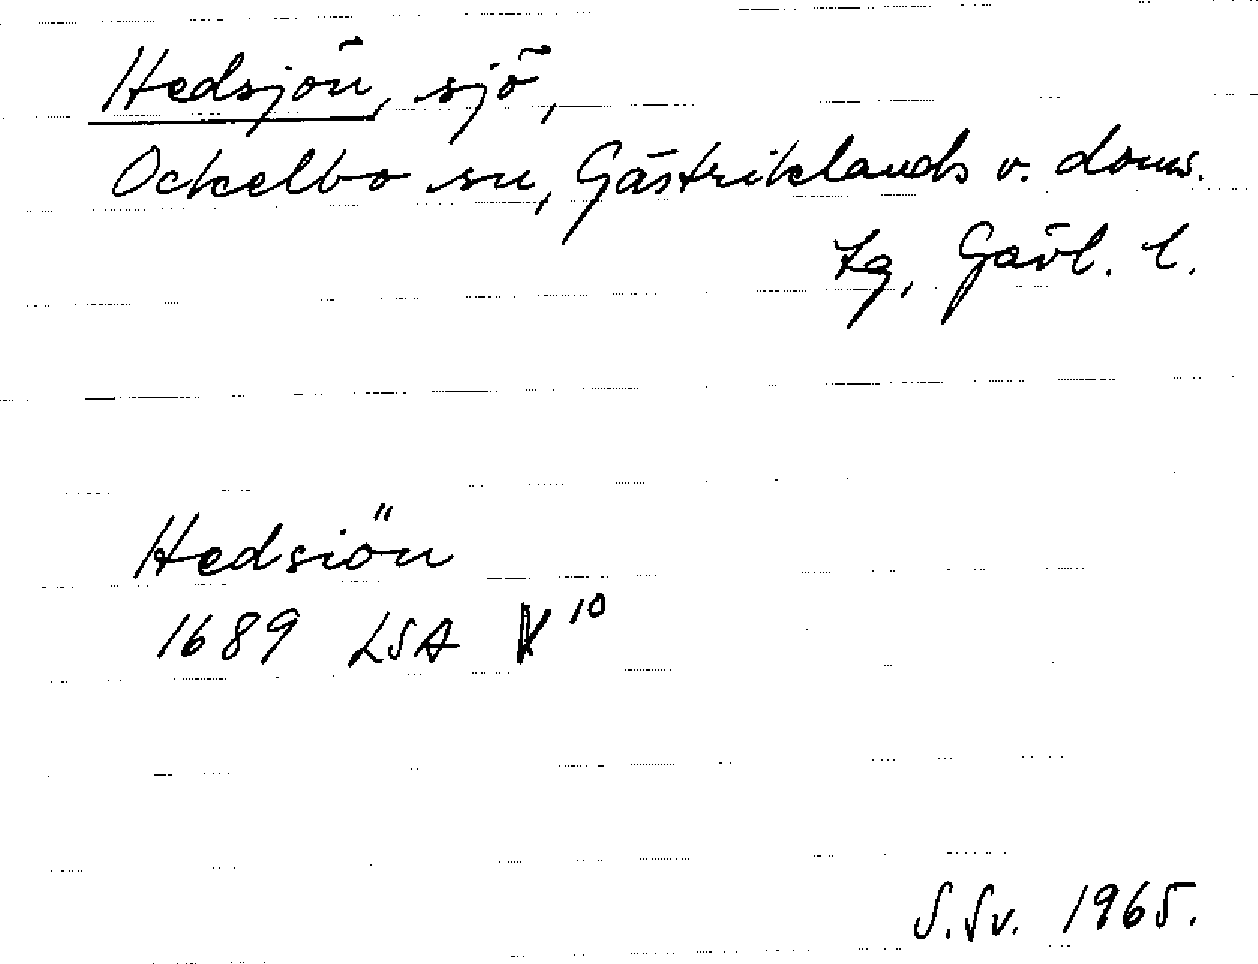 Hedsjön, sjö,
Ockelbo sn, Gästriklands v. doms.
tg, Gävl. l.
Hedsiön
1689 LSA V 10
S. Sv. 1965.